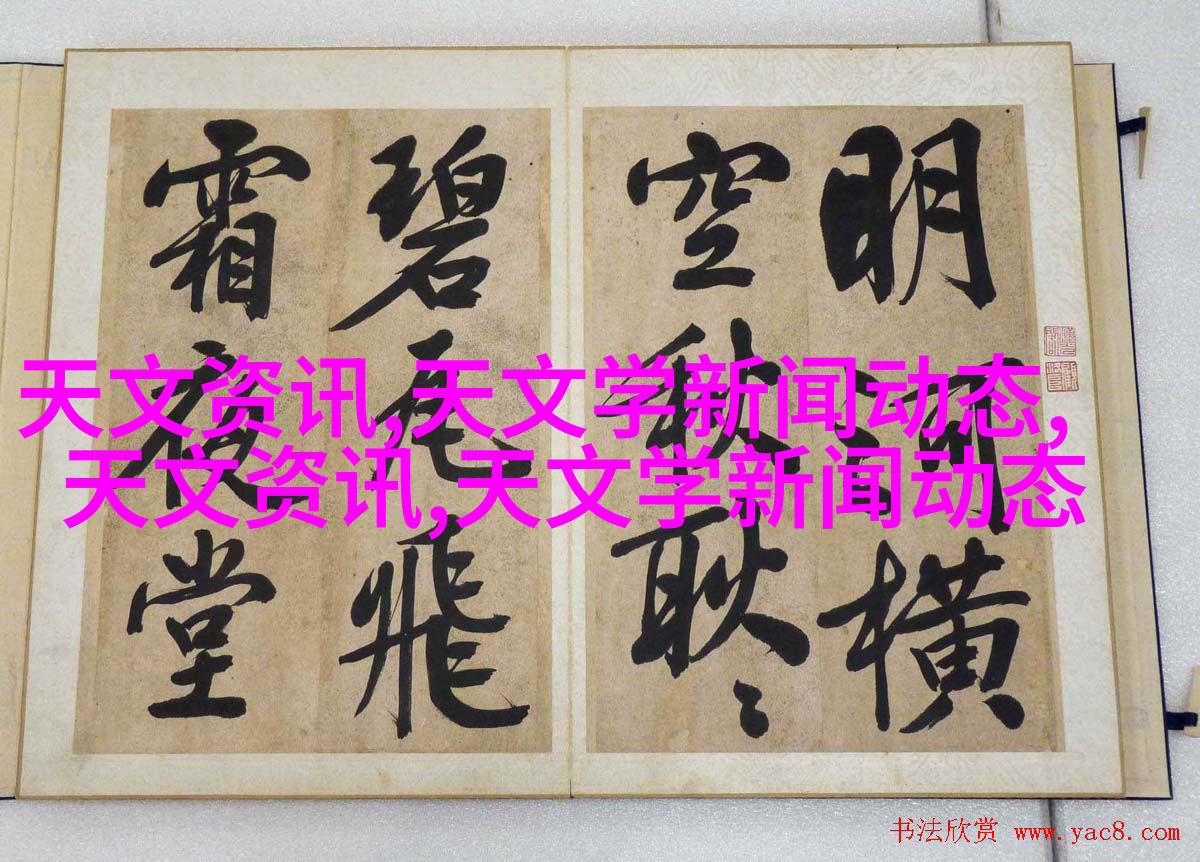 明河横
空秋耿〻
碧瓦飛
霜夜堂
天文资讯,天文学新闻动态,
天文资讯,天文学新闻动态
书法欣赏 www.yac8.com